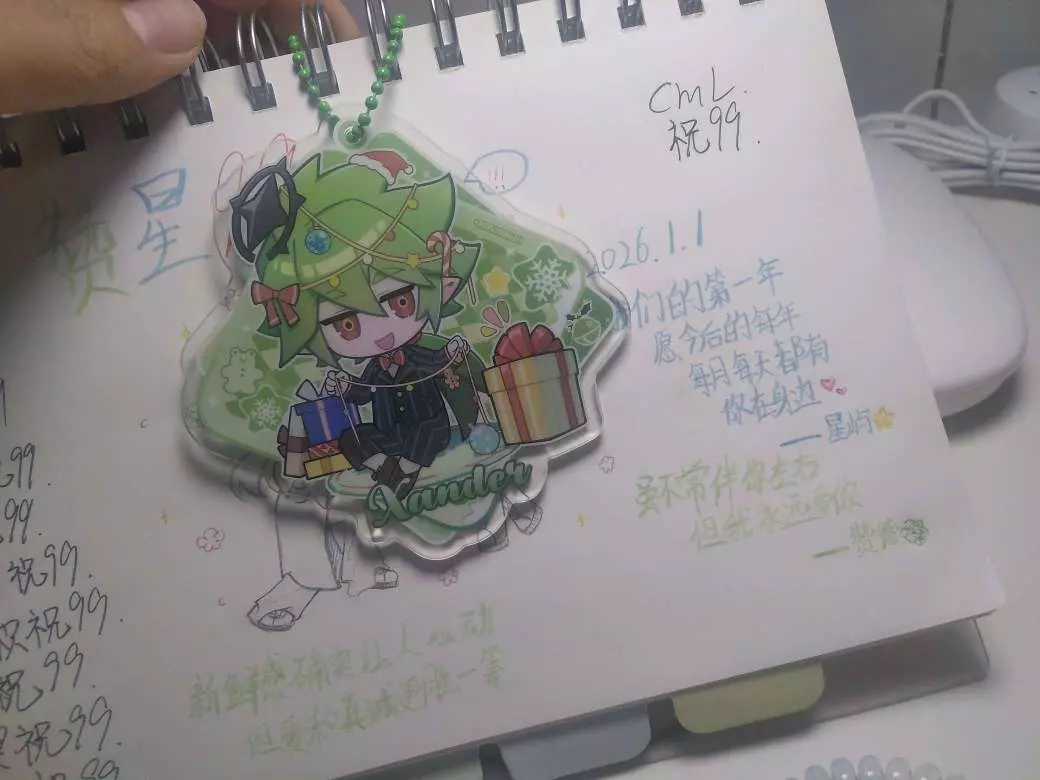 赞星
!!!
CML.
祝99.
2026.1.1
们的第一年
愿今后的每年
每月每天都有
你在身边
——星屿
虽不常伴你左右
但我永远爱你
Xander
99.
99.
祝99.
祝99.
祝99.
祝99.
99
新鲜感确实让人心动
但爱and真诚到